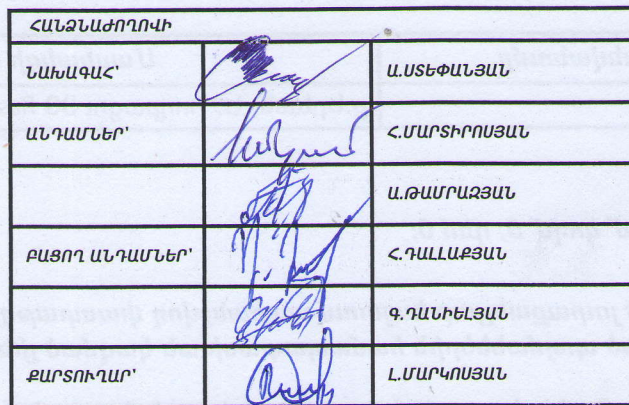 ՀԱՆՁՆԱԺՈՂՈՎԻ
ՆԱԽԱԳԱՀ՝ Ա.ՍՏԵՓԱՆՅԱՆ
ԱՆԴԱՄՆԵՐ՝ Հ.ՄԱՐՏԻՐՈՍՅԱՆ
Ա.ԹԱՄՐԱԶՅԱՆ
ԲԱՑՈՂ ԱՆԴԱՄՆԵՐ՝ Հ.ԴԱԼԼԱՔՅԱՆ
Գ.ԴԱՆԻԵԼՅԱՆ
ՔԱՐՏՈՒՂԱՐ՝ Լ.ՄԱՐԿՈՍՅԱՆ